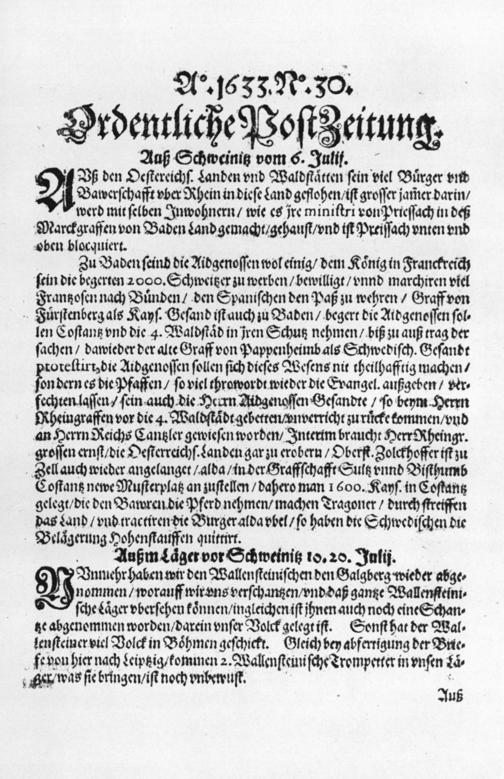 A°. 1633. N°. 30.
Ordentliche PostZeitung.
Auß Schweinitz vom 6. Julij.
AUß den Oestereichs. Landen vnd Waldstätten sein viel Bürger vnd
Bawerschafft vber Rhein in diese Land geflohen/ist grosser jam̃er darin/
werd mit selben Inwohnern / wie es jre ministri von Priessach in deß
Marckgraffen von Baden Land gemacht/gehaust/vnd ist Preissach vnten vnd
oben blocquiert.
Zu Baden seind die Aidgenossen wol einig/ dem König in Franckreich
sein die begerten 2000. Schweitzer zu werben/ bewilligt/ vnnd marchiren viel
Frantzosen nach Bünden / den Spanischen den Paß zu wehren / Graff von
Fürstenberg als Kays. Gesand ist auch zu Baden / begert die Aidgenossen sol-
len Costantz vnd die 4. Waldstäd in jren Schutz nehmen / biß zu auß trag der
sachen / dawieder der alte Graff von Pappenheimb als Schwedisch. Gesandt
protestirt,die Aidgenossen sollen sich dieses Wesens nit theilhafftig machen /
sondern es die Pfaffen / so viel throwordt wieder die Evangel. außgeben / ver-
fechten lassen / sein auch die Herrn Aidgenossen Gesandte / so beym Herrn
Rheingraffen vor die 4. Waldstädt gebetten/vnverricht zu rücke kommen/vnd
an Herrn Reichs Cantzler gewiesen worden/ Interim braucht Herr Rheingr.
grossen ernst/die Oestereichs. Landen gar zu erobern / Oberst. Zolckhoffer ist zu
Zell auch wieder angelanget / alda / in der Graffschafft Sultz vnnd Bisthumb
Costantz newe Musterplatz an zustellen / dahero man 1600. Kays. in Costantz
gelegt/die den Bawren die Pferd nehmen/ machen Tragoner / durch streiffen
das Land / vnd tractiren die Burger alda vbel / so haben die Schwedischen die
Belägerung Hohenstauffen quittirt.
Außm Läger vor Schweinitz 10. 20. Julij.
NUnmehr haben wir den Wallensteinischen den Galgberg wieder abge-
nommen / worauff wir vns verschantzen/vnd daß gantze Wallensteini-
sche Läger vbersehen können/ingleichen ist ihnen auch noch eine Schan-
tze abgenommen worden/darein vnser Volck gelegt ist. Sonst hat der Wal-
lensteiner viel Volck in Böhmen geschickt. Gleich bey abfertigung der Brie-
fe von hier nach Leipzig/kommen 2. Wallensteinische Trompetter in vnsen Lä-
ger/was sie bringen/ist noch vnbewust.
Auß